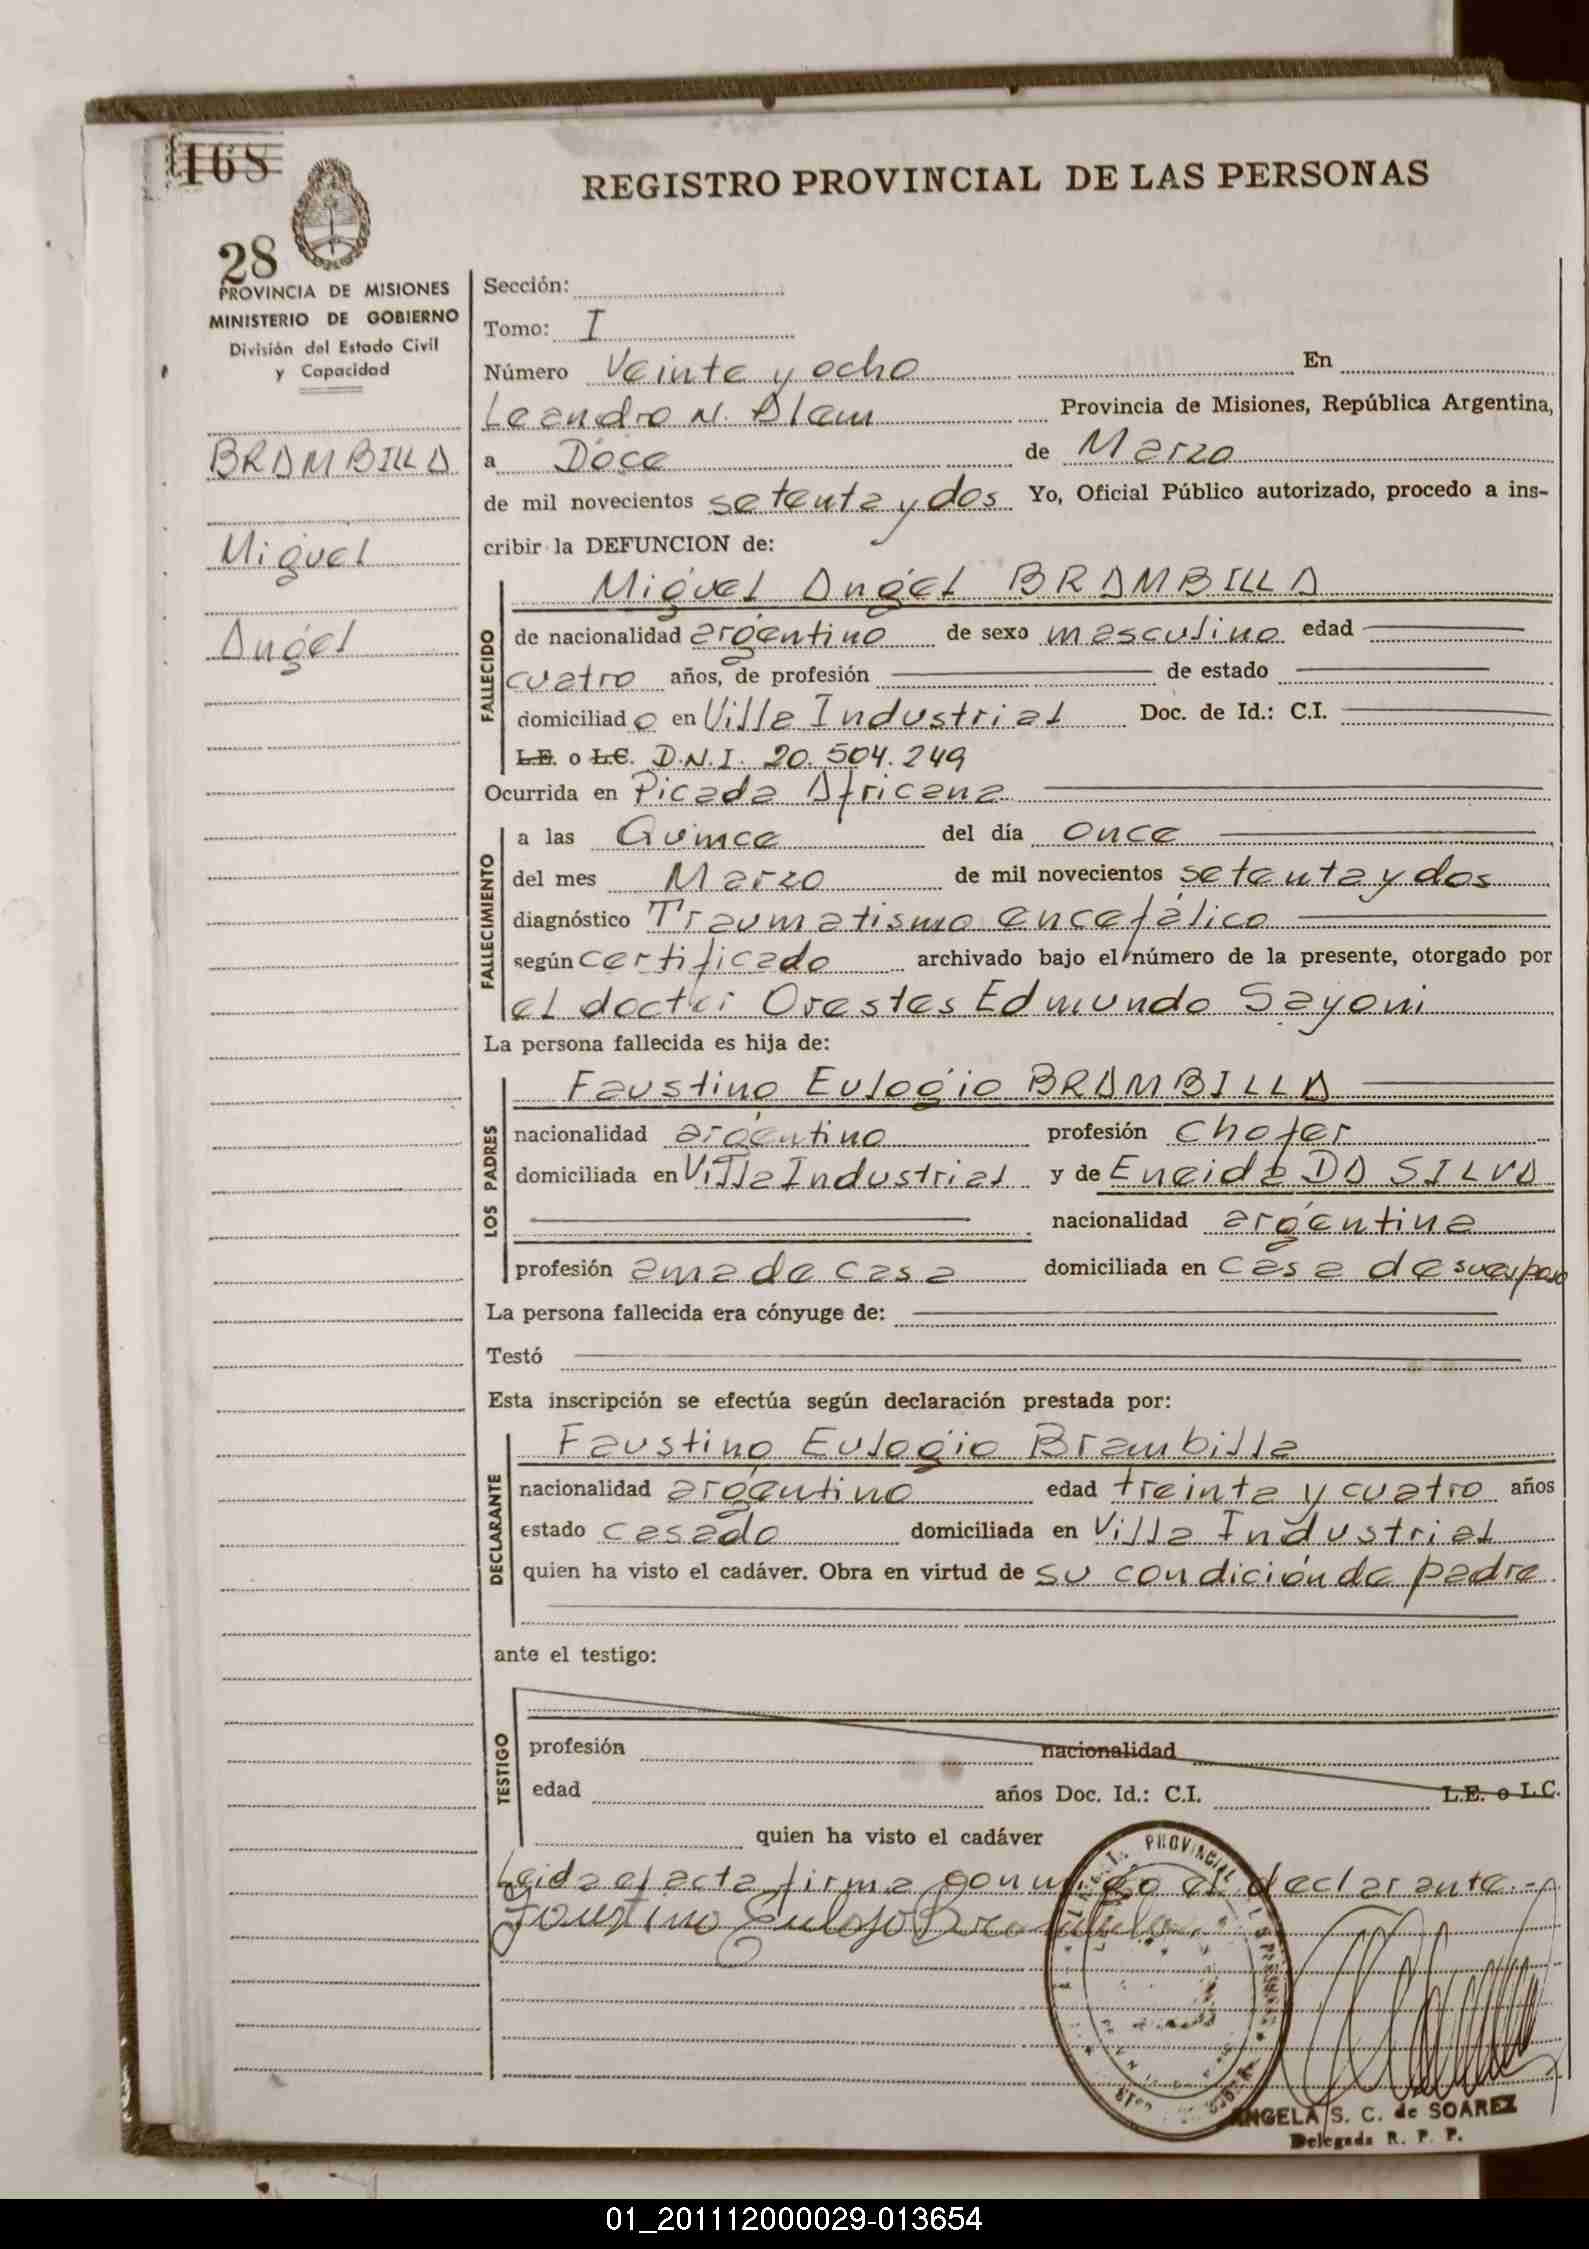 168
REGISTRO PROVINCIAL DE LAS PERSONAS
28
PROVINCIA DE MISIONES
MINISTERIO DE GOBIERNO
División del Estado Civil
y Capacidad
BRAMBILLA
Miguel
Angel
Sección:
Tomo: I
Número Veinte y ocho En
Leandro N. Alem Provincia de Misiones, República Argentina,
a Doce de Marzo
de mil novecientos setenta y dos Yo, Oficial Público autorizado, procedo a ins-
cribir la DEFUNCION de:
FALLECIDO
Miguel Angel BRAMBILLA
de nacionalidad argentino de sexo masculino edad
cuatro años, de profesión de estado
domiciliado en Villa Industrial Doc. de Id.: C.I.
L.E. o L.C. D.N.I. 20.504.249
Ocurrida en Picada Africana
FALLECIMIENTO
a las Quince del día once
del mes Marzo de mil novecientos setenta y dos
diagnóstico Traumatismo encefálico
según certificado archivado bajo el número de la presente, otorgado por
el doctor Orestes Edmundo Sayoni
La persona fallecida es hija de:
LOS PADRES
Faustino Eulogio BRAMBILLA
nacionalidad argentino profesión chofer
domiciliada en Villa Industrial y de Eneida DA SILVA
nacionalidad argentina
profesión ama de casa domiciliada en casa de su esposo
La persona fallecida era cónyuge de:
Testó
Esta inscripción se efectúa según declaración prestada por:
DECLARANTE
Faustino Eulogio Brambilla
nacionalidad argentino edad treinta y cuatro años
estado casado domiciliada en Villa Industrial
quien ha visto el cadáver. Obra en virtud de su condición de padre.
ante el testigo:
TESTIGO
profesión nacionalidad
edad años Doc. Id.: C.I. L.E. o L.C.
quien ha visto el cadáver
Leida el acta firma conmigo el declarante.-
Faustino Eulogio Brambilla
PROVINCIAL
ANGELA S. C. de SOAREZ
Delegada R. P. P.
01_201112000029-013654